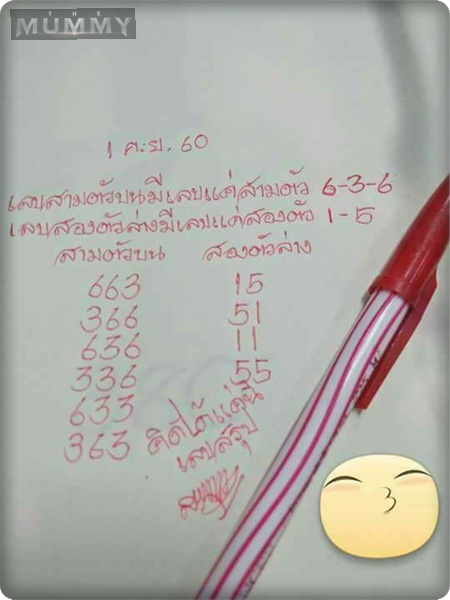 THE
MUMMY
1 ก.ย. 60
เลขสามตัวบนมีเลขแค่สามตัว 6-3-6
เลขสองตัวล่างมีเลขแค่สองตัว 1-5
สามตัวบน สองตัวล่าง
663 15
366 51
636 11
336 55
633
363 คิดได้แค่นี้
เลขสรุป